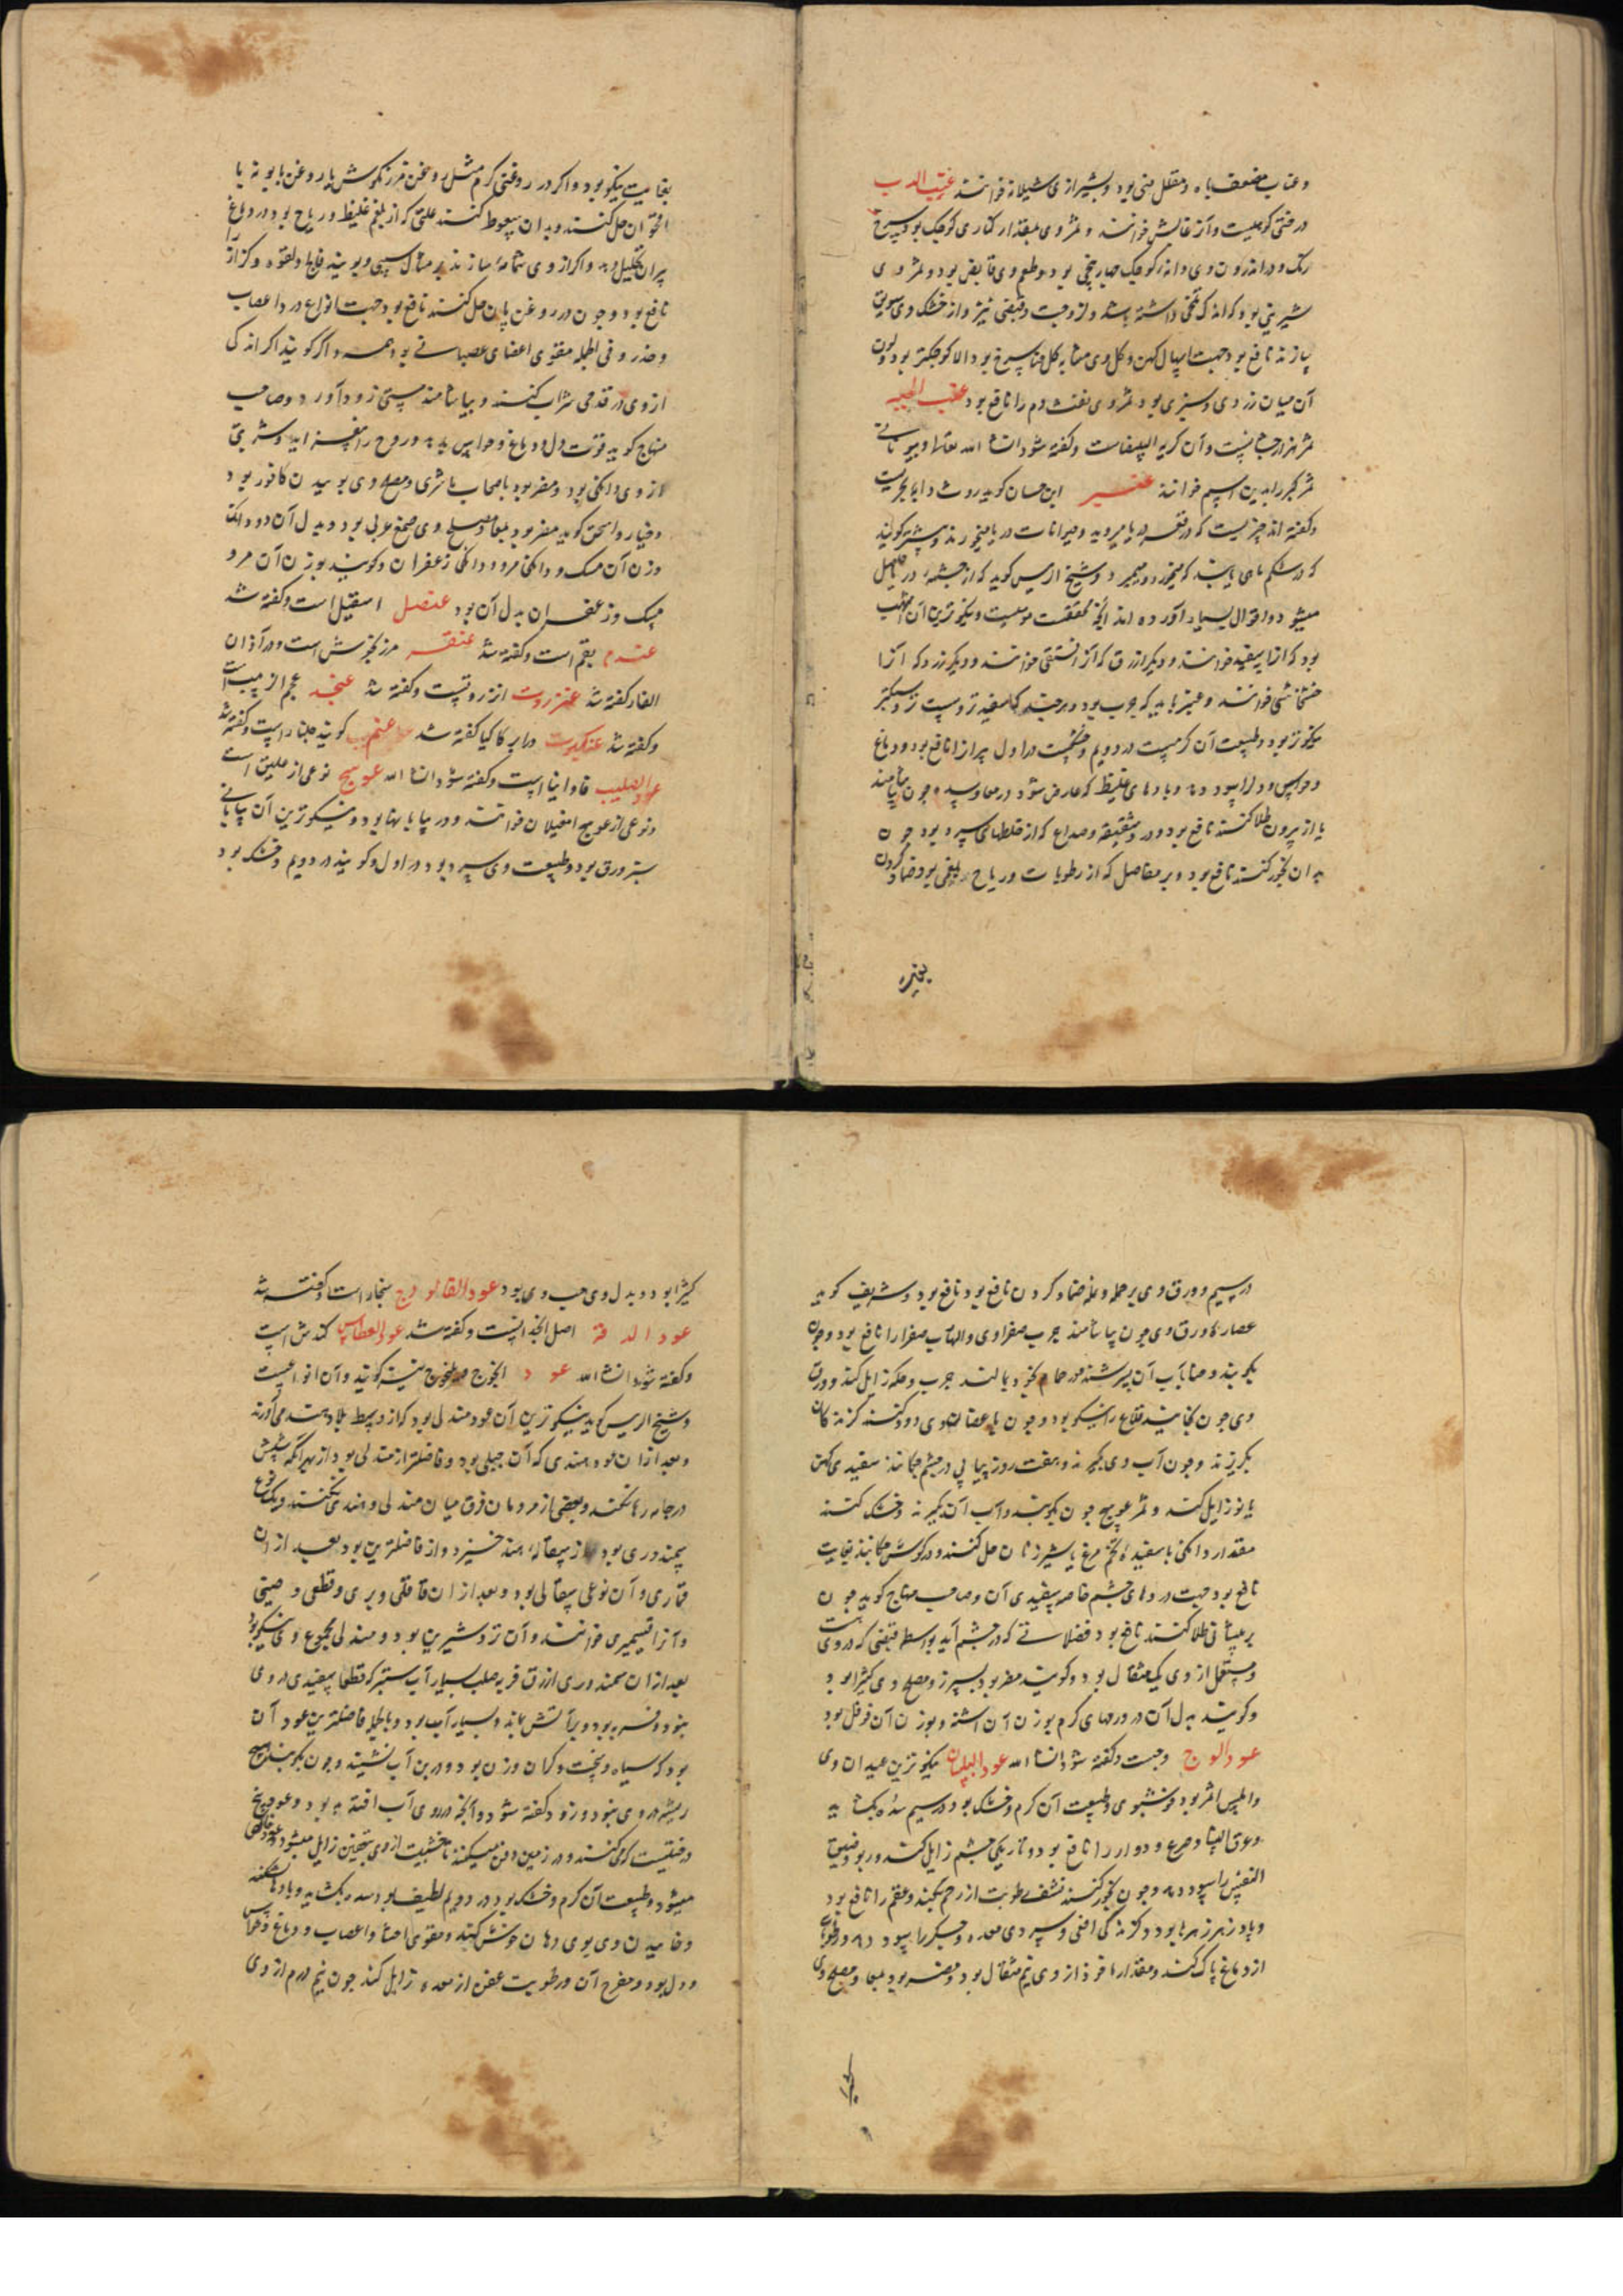 و عناب مضعف باه و مقلل منی بود و بشیرازی شیلانه خوانند عنب الدب
درختی کوهیست و آنرا غالبش خوانند و ثمر وی بمقدار کناری کوچک بود و سرخ
رنک و در اندرون وی دانهٔ کوچک چهار پنج بود و طعم وی قابض بود و ثمر وی
شیرینی بود که اندک تلخی داشته باشد و لزوجت و قبضی نیز و از خشک وی سویق
سازند نافع بود جهت اسهال کهن و کل وی مشابه کل عناب سرخ بود الا کوچکتر بود و لون
آن میان زردی و سبزی بود ثمر وی نفث دم را نافع بود عنب الحیه
ثمر هزارجشانست و آن کرمه البیضاست و گفته شود انشا الله تعالی و بیونانی
ثمر کبر را بدین اسم خوانند عنبر ابن حسان کوید روث دابه بحریست
و گفته اند چیزیست که در قعر دریا میروید و حیوانات دریا میخورند و بیشتر گویند
که در شکم ماهی یابند که میخورد و میمیرد و شیخ الریس کوید که از چشمهٔ در دریا حاصل
میشود و اقوال بسیار آورده اند آنچه محققت مومیست و نیکوترین آن اشهب
بود که انرا سفید خوانند و دیگر ازرق که آنرا فستقی خوانند و دیگر زرد که آنرا
خشخاشی خوانند و عنبر باید که چرب بود و هرچند که سفیدتر و سبکتر
نیکوتر بود و طبیعت آن کرمست در دویم و خشکست در اول پیرانرا نافع بود و دماغ
و حواس و دل را سود دهد و بادهای غلیظ که عارض شود در معا و سده چون بیاشامند
یا از بیرون طلا کنند نافع بود و درد شقیقه و صداع که از خلطهای سرد بود چون
بدان بخور کنند نافع بود و بر مفاصل که از رطوبات و ریاح بلغمی بود ضماد کردن
بغایت
بغایت نیکو بود و اکر در روغنی کرم مثل روغن مرزنکوش یا روغن بابونه یا
اقحوان حل کنند و بدان سعوط کنند علتی که از بلغم غلیظ و ریاح بود در دماغ
بدان تحلیل دهد و اکر از وی شمامهٔ سازند بر مثال سیبی و بویند فالج و لقوه و کزاز را
نافع بود و چون در روغن بان حل کنند نافع بود جهت انواع درد اعصاب
و خدر و فی الجمله مقوی اعضای عصبانی بود همه و اگر گویند اکر اندک
از وی در قدحی شراب کنند و بیاشامند مستی زود آورد و صاحب
منهاج کوید قوت دل و دماغ و حواس بدهد و روح را بیفزاید و شربتی
از وی دانکی بود و مضر بود باصحاب باشری و مصلح وی بوییدن کافور بود
و خیار و اسحق کوید مضر بود بمعا و مصلح وی صمغ عربی بود و بدل آن دو دانک
وزن آن مسک و دانکی مرو و دانکی زعفران و کویند بوزن آن مرو
مسک و زعفران بدل آن بود عنصل اسقیل است و گفته شد
عندم بقم است و گفته شد عنقر مرزنجوش است و در آذان
الفار گفته شد عنزروت انزروتست و گفته شد عنجد عجم از میب است
و گفته شد عنکبوت در ابر کاکیا گفته شد عنم کویند است و گفته شد
عود الصلیب فاوانیا است و گفته شود انشا الله عوسج نوعی از علیق است
و نوعی از عوسج امغیلان خوانند و در بیابانها بود و نیکوترین آن بیابانی
سبز ورق بود و طبیعت وی سرد بود در اول و گویند در دویم و خشک بود
در سیم و ورق وی بر حمره و نمله ضماد کردن نافع بود نافع بود و شریف کوید
عصارهٔ ورق وی چون بیاشامند جرب صفراوی و التهاب صفرا را نافع بود و چون
بکوبند و حنا بآب آن بسرشند در حمام بخود بمالند جرب و حکه زایل کند و ورق
وی چون بخایند قلاع را نیکو بود و چون باغصان وی دود کنند کزندکان
بکریزند و چون آب وی بگیرند و هفت روز پیاپی در چشم چکانند سفیدی کهن
یا نو زایل کند و ثمر عوسج چون بکوبند و آب آن بگیرند و خشک کنند
مقدار دانکی با سفیدهٔ تخم مرغ یا شیر زنان حل کنند و در گوش چکانند بغایت
نافع بود جهت دردهای چشم خاصه سفیدی آن و صاحب منهاج کوید چون
بر پیشانی طلا کنند نافع بود فضلاتی که در چشم آید بواسطه قبضی که در وی هست
و مستعمل از وی یک مثقال بود و گویند مضر بود بسپرز و مصلح وی کثیرا بود
و کویند بدل آن در ورمهای کرم بوزن آن اشنه و بوزن آن فوفل بود
عود الوج وجست و گفته شود انشا الله عود البلسان نیکوترین عیدان وی
و املس اثمر بود خوشبوی و طبیعت آن کرم و خشک بود در سیم سده بکشاید
و عرق النسا و صرع و دوار را نافع بود و تاریکی چشم زایل کند و ربو و ضیق
النفس را سود دهد و چون بخور کنند نشف رطوبت از رحم بکند و عقم را نافع بود
و پادزهر زهرها بود و کزندکی افعی و سردی معده و جکر را سود دهد و رطوبات
از دماغ پاک کند و مقدار ماخوذ از وی نیم مثقال بود و مضر بود بمعا و مصلح وی
کثیرا
کثیرا بود و بدل وی حب وی بود عود القالوج سنجار است و گفته شد
عود الدقه اصل انجدانست و گفته شد عود العطاس کندش است
و گفته شود انشا الله عود النجوج و یلنجوج نیز گویند و آن انواعیست
و شیخ الریس کوید نیکوترین آن عود مندلی بود که از وسط بلاد هند می آورند
و بعد از آن عود هندی که آن جبلی بود و فاضلتر از مندلی بود از بهر آنکه سپش
در جامه رها نکند و بعضی از مردمان فرق میان مندلی و هندی نکنند و یک نوع
سمندوری بود از سفالهٔ هند خیزد و از فاضلترین بود بعد از آن
قماری و آن نوعی سفالی بود و بعد از آن قاقلی و بری و قطعی و صینی
و آنرا قسمیری خوانند و آن تر و شیرین بود و مندلی مجموع وی نیکو بود
بعد از آن سمندوری ازرق فربه صلب بسیار آب ستبر که قطعا سفیدی در وی
نبود و فربه بود و بر آتش بماند و بسیار آب بود و بالجمله فاضلترین عود آن
بود که سیاه و سخت و کران وزن بود و در بن آب نشیند و چون بکوبند هیچ
ریشه در وی نبود و زود کفته شود و آنچه در روی آب افتد بد بود و عود بیخ
درختیست که می کنند و در زمین دفن میکنند تا خشبیت از وی زایل میشود و عود خالص
میشود و طبیعت آن کرم و خشک بود در دویم لطیف بود سده بکشاید و بادها بشکند
و خاییدن وی بوی دهان خوش کند و مقوی احشا و اعصاب و دماغ و حواس
و دل بود و مفرح آن و رطوبت عفن از معده زایل کند چون نیم درم از وی